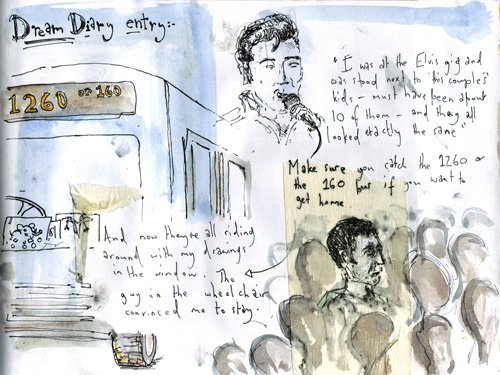 Dream Diary entry:-
1260 OR 160
"I was at the Elvis gig and
was stood next to this couple's
kids - must have been about
10 of them - and they all
looked exactly the same"
Make sure you catch the 1260 or
the 160 bus if you want to
get home
And now they're all riding
around with my drawings
in the window. The
guy in the wheelchair
convinced me to stay.